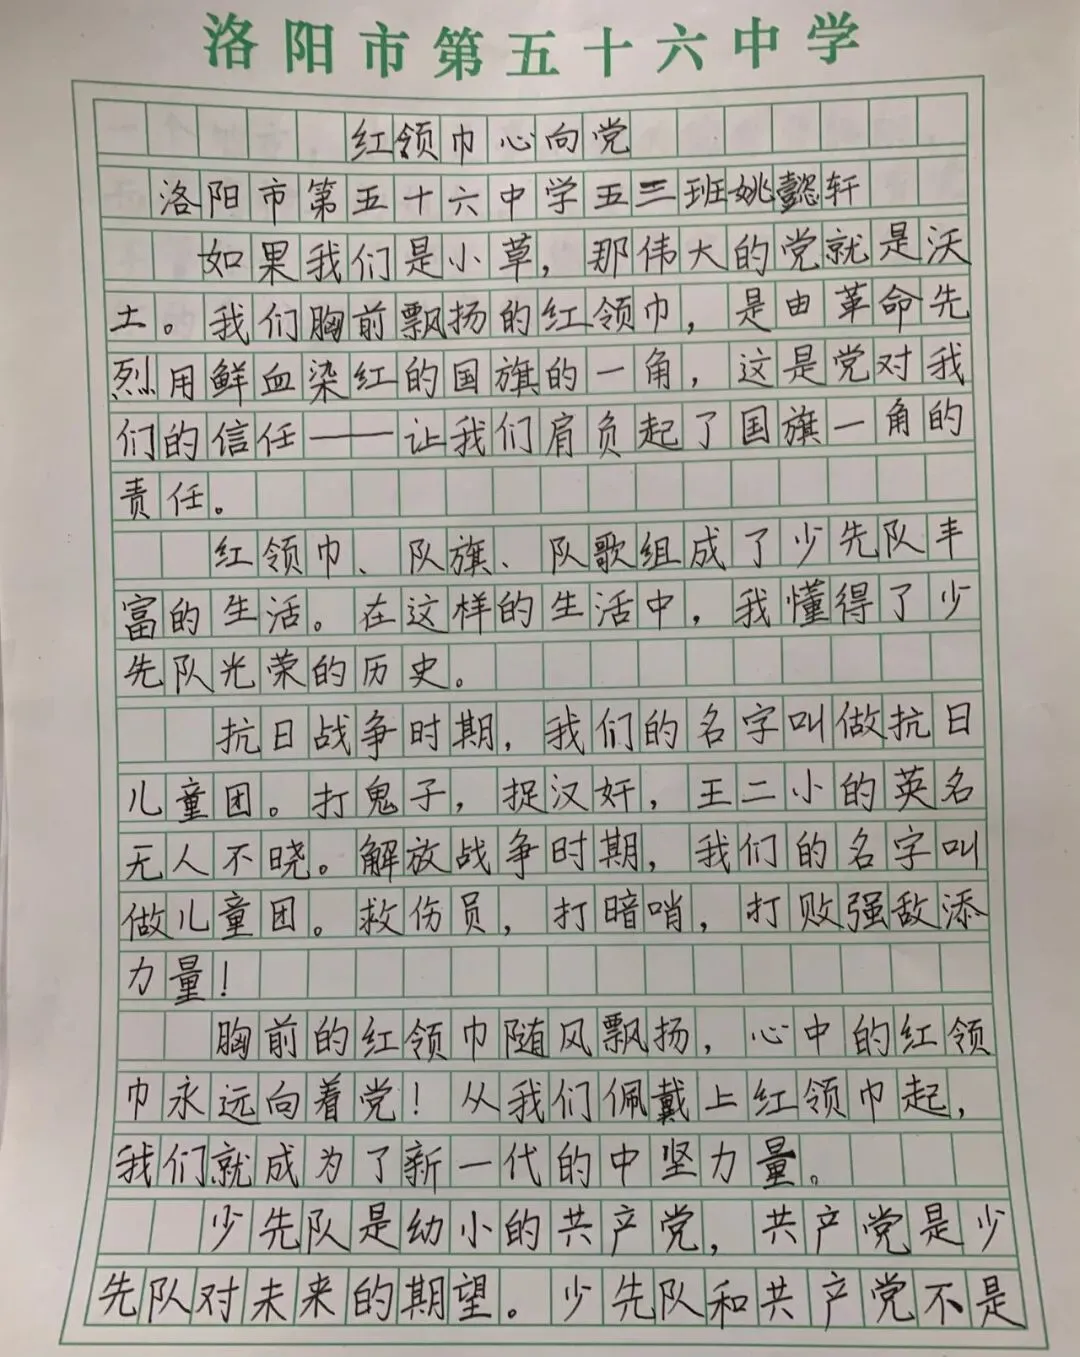 洛阳市第五十六中学
红领巾心向党
洛阳市第五十六中学五三班姚懿轩
如果我们是小草，那伟大的党就是沃
土。我们胸前飘扬的红领巾，是由革命先
烈用鲜血染红的国旗的一角，这是党对我
们的信任——让我们肩负起了国旗一角的
责任。
红领巾、队旗、队歌组成了少先队丰
富的生活。在这样的生活中，我懂得了少
先队光荣的历史。
抗日战争时期，我们的名字叫做抗日
儿童团。打鬼子，捉汉奸，王二小的英名
无人不晓。解放战争时期，我们的名字叫
做儿童团。救伤员，打暗哨，打败强敌添
力量！
胸前的红领巾随风飘扬，心中的红领
巾永远向着党！从我们佩戴上红领巾起，
我们就成为了新一代的中坚力量。
少先队是幼小的共产党，共产党是少
先队对未来的期望。少先队和共产党不是